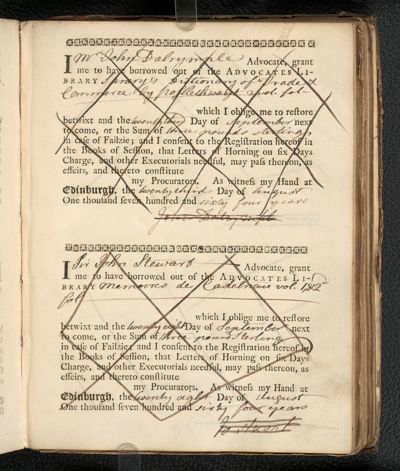 I Mr John Dalrymple Advocate, grant
me to have borrowed out of the ADVOCATES LI-
BRARY Savary's Dictionary of Trade &
Commerce by Postlethwayt 2 vol. fol.
which I oblige me to reſtore
betwixt and the twenty third Day of September next
to come, or the Sum of three pounds sterling
in caſe of Failzie; and I conſent to the Regiſtration hereof in
the Books of Seſſion, that Letters of Horning on ſix Days
Charge, and other Executorials needful, may paſs thereon, as
effeirs, and thereto conſtitute
my Procurators. As witneſs my Hand at
Edinburgh, the twenty third Day of August
One thouſand ſeven hundred and sixty four years
John Dalrymple
I Sir John Stewart Advocate, grant
me to have borrowed out of the ADVOCATES LI-
BRARY Memoires de Castelnau vol. 1, &2d
fol.
which I oblige me to reſtore
betwixt and the twenty eight Day of September next
to come, or the Sum of three pound sterling
in caſe of Failzie and I conſent to the Regiſtration hereof in
the Books of Seſſion, that Letters of Horning on ſix Days
Charge, and other Executorials needful, may paſs thereon, as
effeirs, and thereto conſtitute
my Procurators. As witneſs my Hand at
Edinburgh, the twenty eight Day of August
One thouſand ſeven hundred and sixty four years